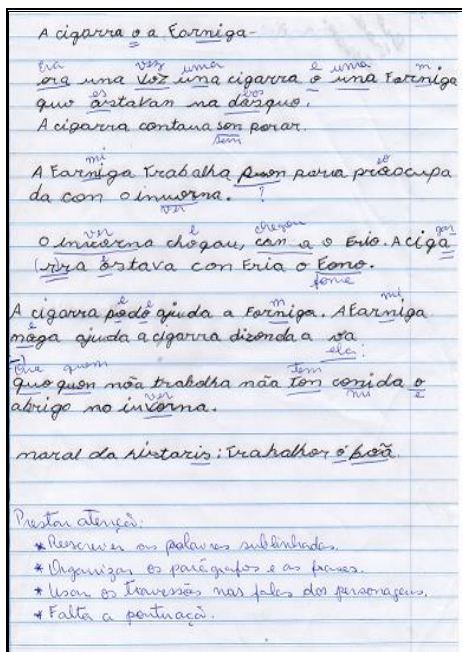 A cigarra o a Formiga-
Era vez uma e uma m
ora una voz una cigarra o una Farniga
es bos
quo ostavan na dosquo.
A cigarra contaua son porar.
sem
mi eo
A Farniga trabalha puon paria prãocupa
da con o invorna. ?
ver
ver e chegou gar
O invorna chogau, can a o Frio. A ciga
(r)ra ostava con Fria o Fono.
fome
e e m mi
A cigarra podo ajuda a Forniga. A Farniga
e
noga ajuda a cigarra dizonda a va
ela:
Que quem tem
quo quon nõa trabalha nãa ton conida o
ver mi e
abrigo no invorna.
maral da Nistaris: Trabalhor ó boã.
Prestar atenção:
* Reescrever as palavras sublinhadas.
* Organizar os parágrafos e as frases.
* Usar os travessões nas falas dos personagens.
* Falta a pontuaçã.